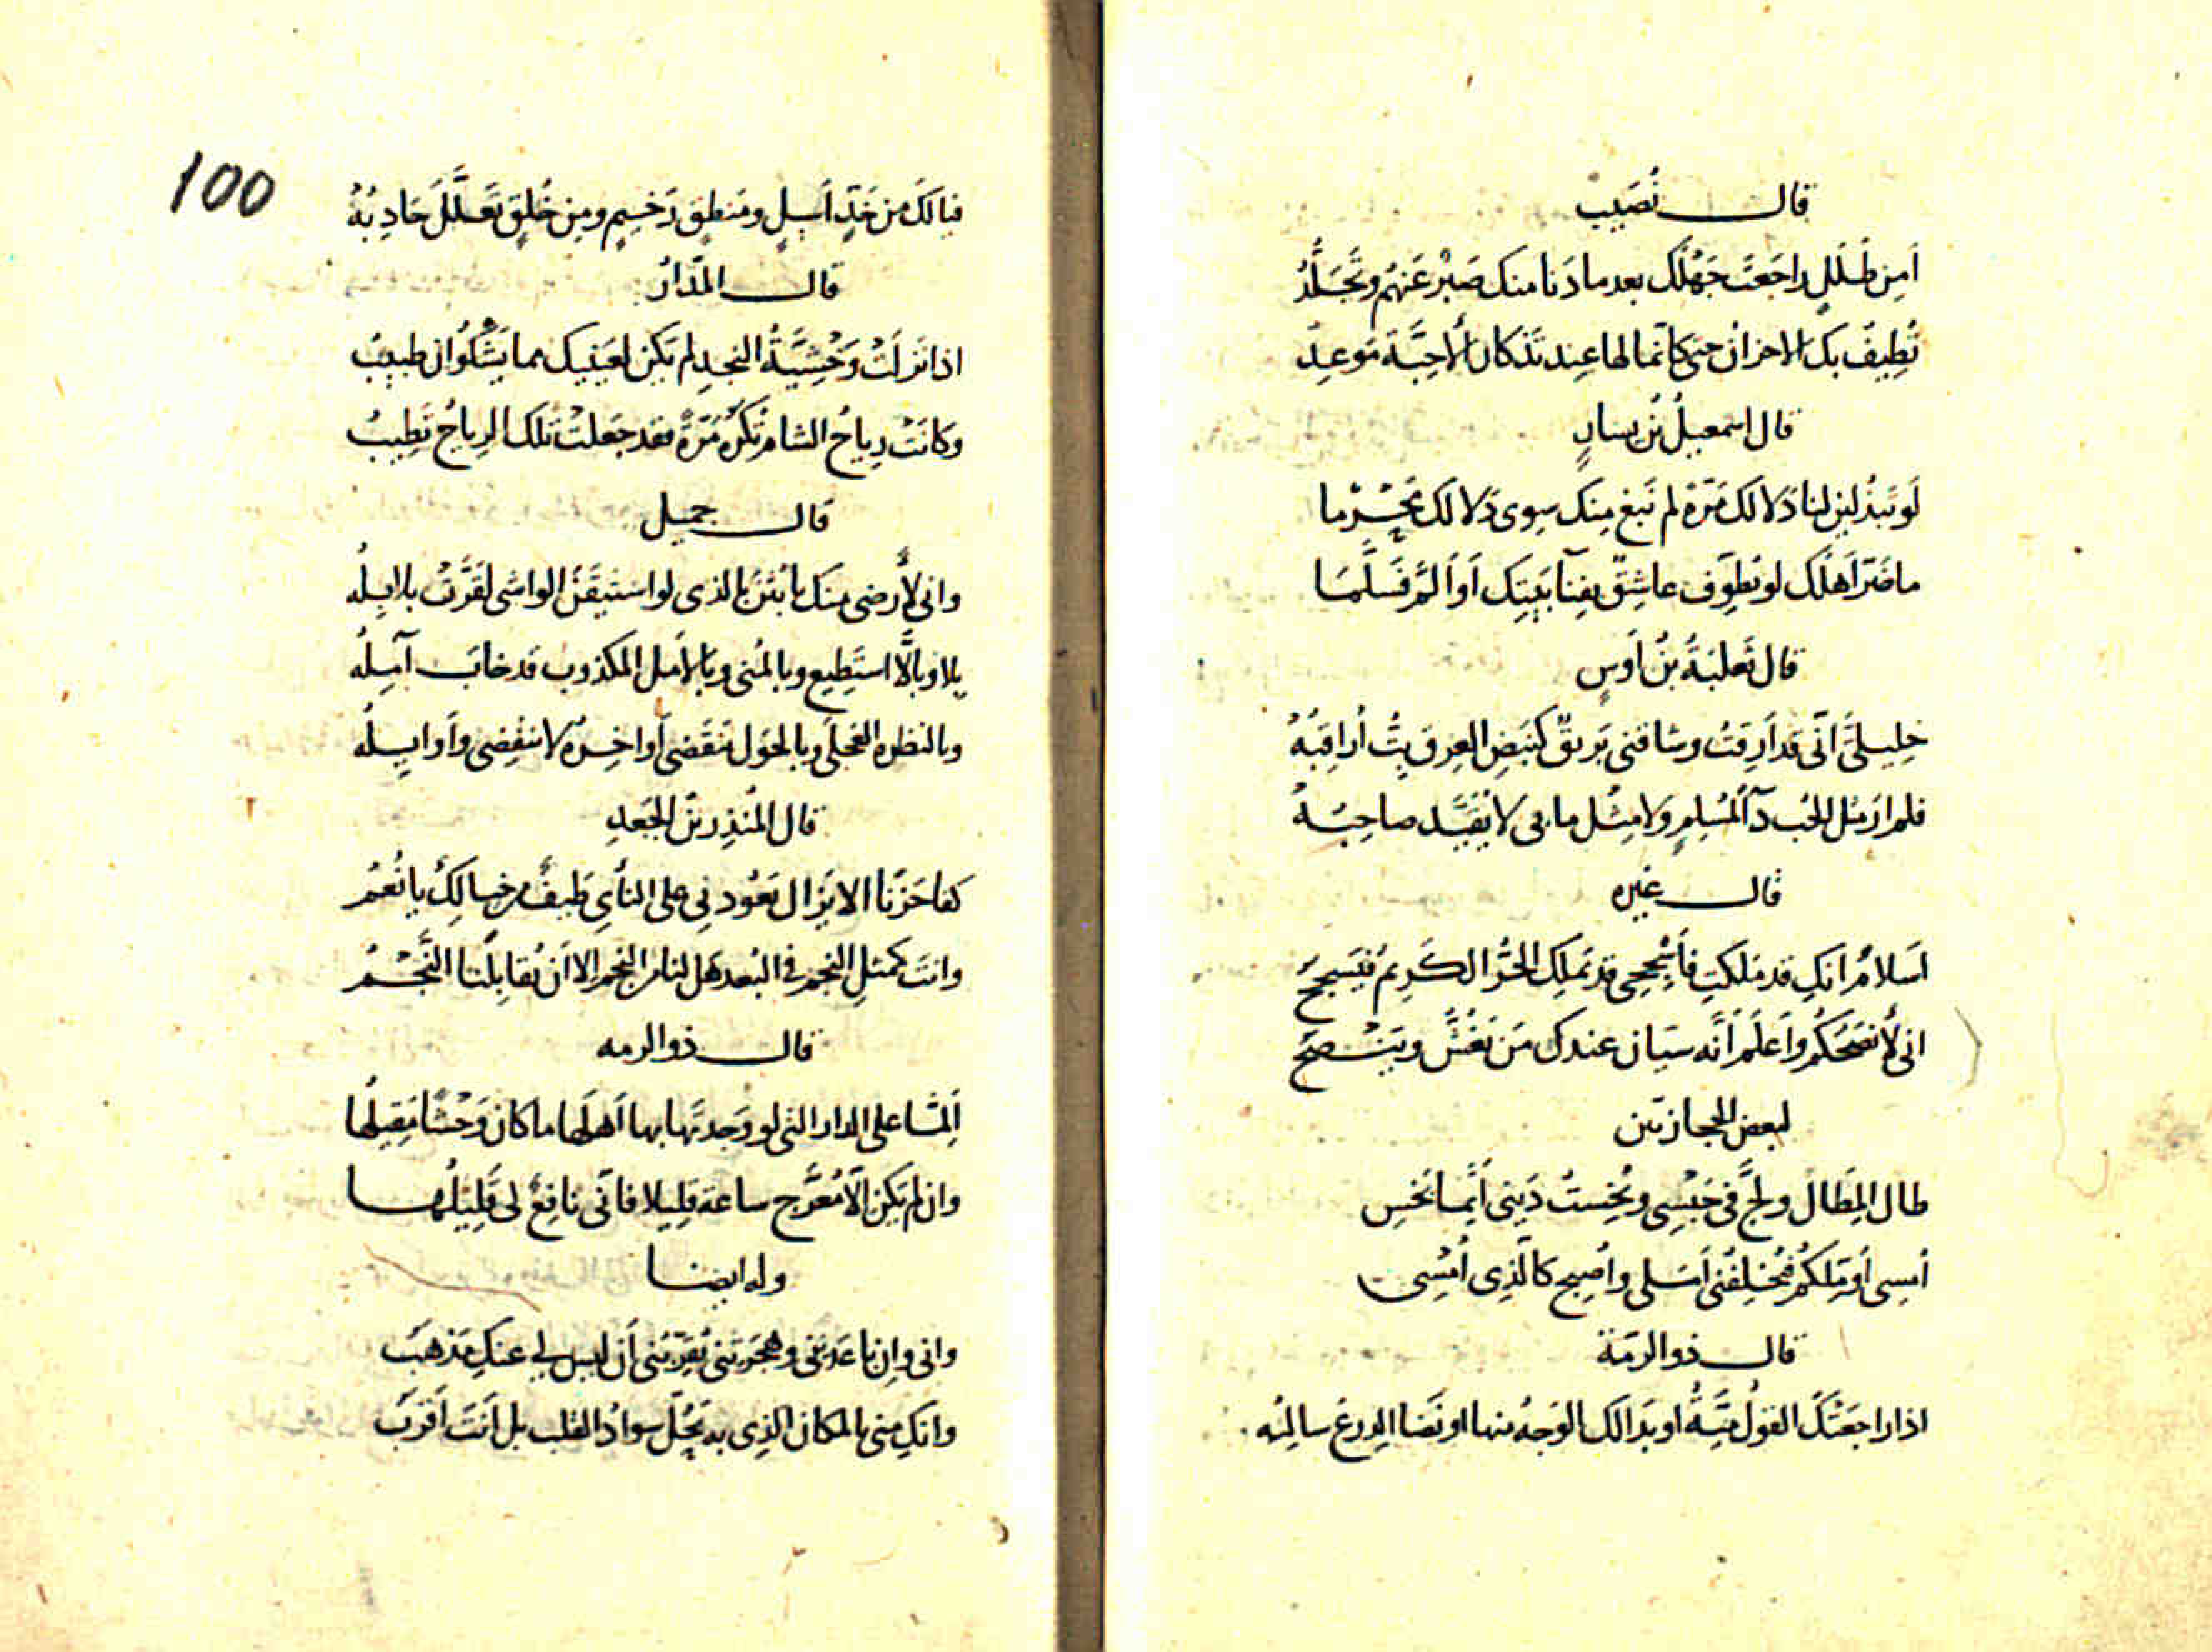 قال نُصَيب
أمِن طَلَلٍ راجَعتَ جَهْلَك بعد ما دَنا منك صَبْرٌ عَنهُم وتَجَلُّدُ
تُطِيفُ بك الاحزان حتى كانما لها عِند تَذكار الأحِبَّة مَوعِدُ
قال اسمعيلُ بنُ يسارٍ
لَو تَبذُلين لنا دَلالَك مَرّةً لم نَبغِ مِنك سِوى دَلالك مَحْرَما
ما ضَرّ أهلَك لو تطوّف عاشِقٌ بفِنآ بَيتِك أو ألَمَّ فَسَلَّمَا
قال ثَعلبَةُ بنُ أوسٍ
خليليَّ انّى قد أرِقتُ وشاقنى بَريقٌ كنَبضِ العِرقِ بِتُّ أُراقِبُهُ
فلم ار مثل الحُب دآءً لمُسْلِمٍ ولا مِثل ما بى لا يُقَيَّد صاحِبُهُ
قال غيره
أسَلامُ انكِ قد ملكتِ فأَسْجِحى قد يَملِك الحُرُّ الكَرِيمُ فيُسجِحُ
انى لأنصَحُكُم وأعلَمُ أنّه سِيّان عندك مَن يَغُشُّ ويَنْصَحُ
لبعض الحجازيّين
طال المِطَالُ ولَجَّ فى حَبْسِى وبُخِستُ دَينِى أيَّما بَخسِ
أُمسِى أُؤمِّلكُم فيُخلِفُنى أمَلى وأُصبِح كالّذِى أُمْسِى
قال ذو الرمّة
اذا راجَعَتْكَ القولَ ميّةُ او بَدا لك الوَجهُ منها او نَضا الدِرعَ سالِبُه
100
فيا لَكَ من خَدٍّ أسيلٍ ومَنطِقٍ رَخيمٍ ومِن خَلقٍ تَعَلَّلَ جادِبُهْ
قال المرّار
اذا نَزلَتْ وَحْشِيَّةُ النجدِ لم يَكن لعَينَيك مما يَشْكُوان طبيبُ
وكانَتْ رياحُ الشام تُكرَهُ مَرَّةً فقد جَعَلتْ تلك الرياحُ تَطِيبُ
قال جميل
وانى لأرضى مِنك يا بَثْنَ بالذى لو استَيقَنَ الواشى لقَرَّتْ بلابِلُه
بلا وبألّا استَطِيع وبالمُنى وبالامَل المكذوب قد خابَ آمِلُه
وبالنظرة العَجلَى وبالحَول تَنقَضى أواخِرُه لا نلتقى وأوايِلُه
قال المُنذِر بنُ الجَعدِ
كفا حَزَنًا الا يَزال يَعُودنِى على النأىِ طَيفٌ مِن خيالِكِ يا نُعْمُ
وانتِ كمثلِ النجم فى البُعد هل لنا من النجم الا أن يُقابلَنا النَّجْمُ
قال ذو الرمه
أَلِمّا على الدار التى لو وَجدتُما بها أهلَها ما كان وَحْشًا مَقيلُها
وان لم يَكن الّا مُعرَّج ساعة قليلا فانّى نافِعٌ لى قَلِيلُها
وله ايضا
وانى وإن باعَدتِنى وهَجَرتِنى يُقَرّبُنى أن ليس لى عنكِ مَذهَب
وانكِ منى بالمكان الذى به يَحُلّ سوادُ القلب بل أنتِ أقرَبُ